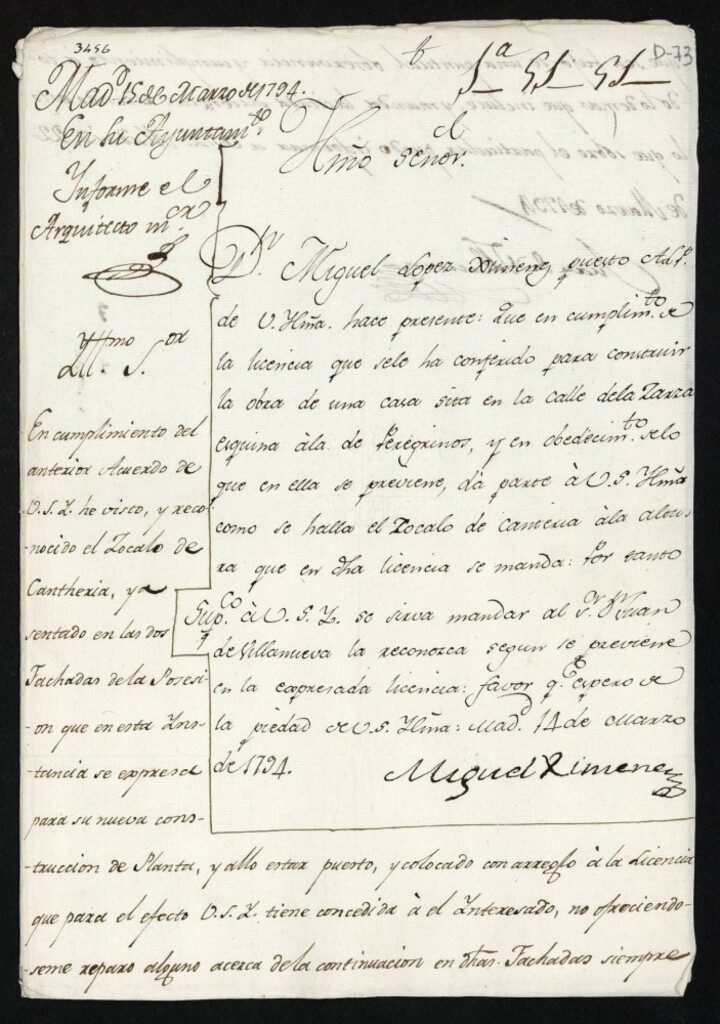 3456
D-73
1ª 51 51
Mad.d 15 de Marzo de 1794.
En su Ayuntam.to
Informe el
Arquitecto m.or
Yllmo S.or
Hmo Señor.
D.n Miguel Lopez Ximenez puesto A.L.P.
de V. Hma. hace presente: Que en cumplim.to de
la licencia que sele ha conferido para construir
la obra de una casa sita en la calle dela Zarza
esquina àla de Peregrinos, y en obedecim.to delo
que en ella se previene, da parte à V.S. Hma
como se halla el Zocalo de canteria àla altu-
ra que en dha licencia se manda: Por tanto
Sup.co à V.S.Y. se sirva mandar al S.or D.n Juan
de Villanueva la reconozca segun se previene
en la expresada licencia: favor q.e espero de
la piedad de V.S. Hma: Mad.d 14 de Marzo
de 1794.
Miguel Ximenez
En cumplimiento del
anterior Acuerdo de
V.S.Y. he visto, y reco-
nocido el Zocalo de
Cantheria, ya
sentado en las dos
Fachadas de la Posesi-
on que en esta Yns-
tancia se expresa
para su nueva cons-
truccion de Planta, y allo estar puesto, y colocado con arreglo à la Licencia
que para el efecto V.S.Y. tiene concedida à el Ynteresado, no ofreciendo-
seme reparo alguno acerca de la continuacion en dhas Fachadas siempre